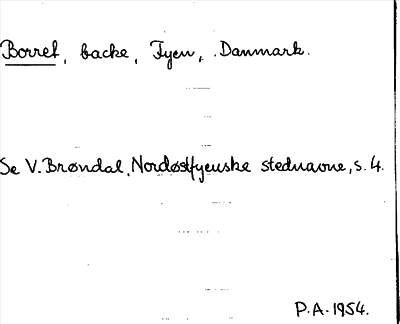 Borret, backe, Fyen, Danmark.
Se V. Brøndal, Nordøstfyenske stednavne, s. 4.
P.A. 1954.